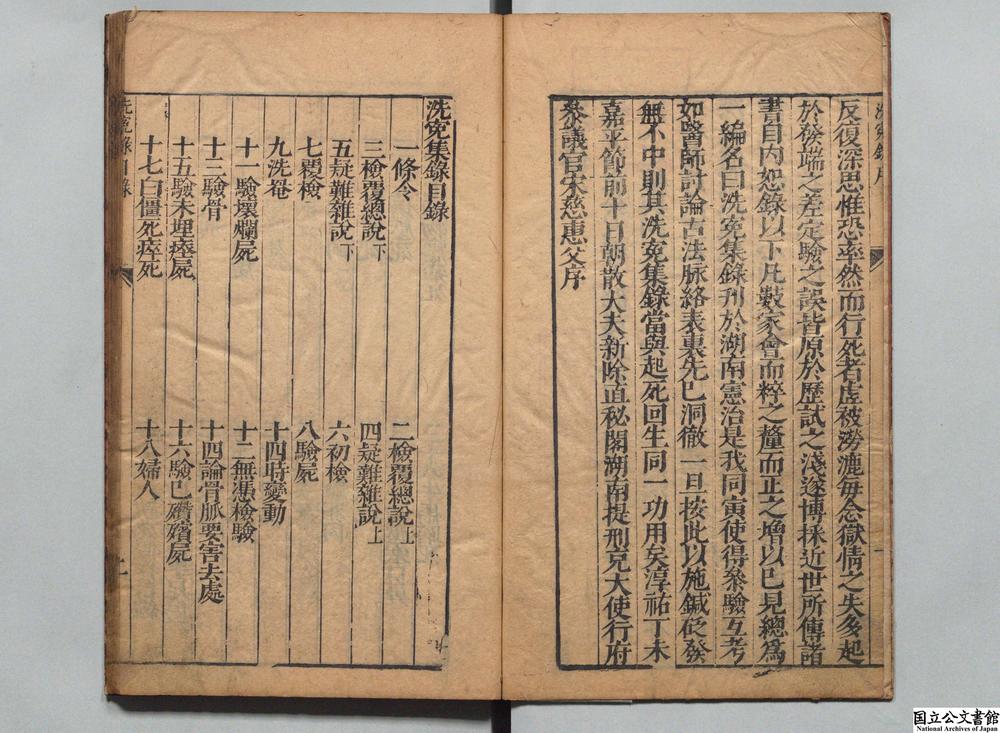 反復深思惟恐率然而行死者虛被澇漉每念獄情之失多起
於發端之差定驗之誤皆原於歷試之淺遂博採近世所傳諸
書自內恕錄以下凡數家會而粹之釐而正之增以己見總爲
一編名曰洗冤集錄刊於湖南憲治是我同寅使得參驗互考
如醫師討論古法脉絡表裏先已洞徹一旦按此以施鍼砭發
無不中則其洗冤集錄當與起死回生同一功用矣淳祐丁未
嘉平節前十日朝散大夫新除直秘閣湖南提刑充大使行府
參議官宋慈惠父序
洗冤集錄目錄
一條令 二檢覆總說上
三檢覆總說下 四疑難雜說上
五疑難雜說下 六初檢
七覆檢 八驗屍
九洗罨 十四時變動
十一驗壞爛屍 十二無憑檢驗
十三驗骨 十四論骨脉要害去處
十五驗未埋瘞屍 十六驗已殯屍
十七白僵死瘁死 十八婦人
洗冤錄目錄
国立公文書館
National Archives of Japan